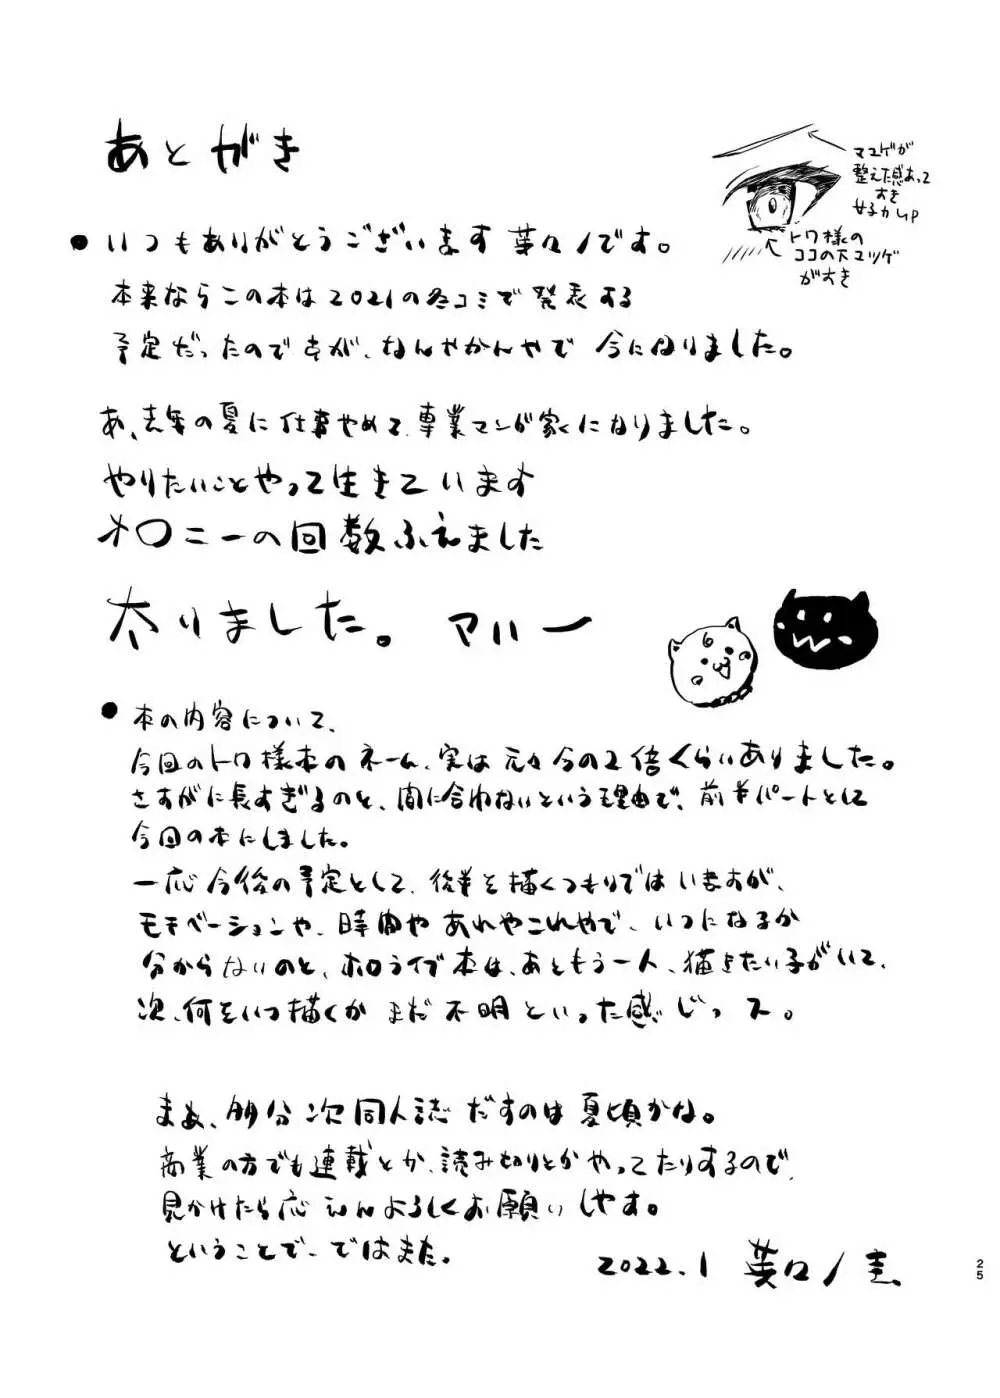 あとがき
マユゲが
整えた感あって
すき
女子力UP
トワ様の
ココの下マツゲ
がすき
●いつもありがとうございます 葉々ノです。
本来ならこの本は2021の冬コミで発表する
予定だったのですが、なんやかんやで 今になりました。
あ、去年の夏に仕事やめて、専業マンガ家になりました。
やりたいことやって生きています
オ○ニーの回数ふえました
太りました。 マハー
●本の内容について、
今回のトワ様本のネーム、実は元々今の2倍くらいありました。
さすがに長すぎるのと、間に合わないという理由で、前半パートとして
今回の本にしました。
一応今後の予定として、後半を描くつもりではいますが、
モチベーションや、時間や あれやこれやで、いつになるか
分からないのと、ホロライブ本は、あともう一人、描きたい子がいて、
次、何をいつ描くか まだ 不明といった感じっス。
まぁ、多分次同人誌だすのは夏頃かな。
商業の方でも連載とか、読み切りとかやってたりするので、
見かけたら応えんよろしくお願いしやす。
ということで、ではまた。
2022.1 葉々ノ圭
25